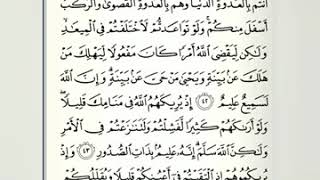 أَنتُم بِٱلۡعُدۡوَةِ ٱلدُّنۡيَا وَهُم بِٱلۡعُدۡوَةِ ٱلۡقُصۡوَىٰ وَٱلرَّكۡبُ
أَسۡفَلَ مِنكُمۡۚ وَلَوۡ تَوَاعَدتُّمۡ لَٱخۡتَلَفۡتُمۡ فِي ٱلۡمِيعَٰدِ
وَلَٰكِن لِّيَقۡضِيَ ٱللَّهُ أَمۡرٗا كَانَ مَفۡعُولٗا لِّيَهۡلِكَ مَنۡ
هَلَكَ عَنۢ بَيِّنَةٖ وَيَحۡيَىٰ مَنۡ حَيَّ عَنۢ بَيِّنَةٖۗ وَإِنَّ ٱللَّهَ
لَسَمِيعٌ عَلِيمٌ ٤٢ إِذۡ يُرِيكَهُمُ ٱللَّهُ فِي مَنَامِكَ قَلِيلٗاۖ
وَلَوۡ أَرَىٰكَهُمۡ كَثِيرٗا لَّفَشِلۡتُمۡ وَلَتَنَٰزَعۡتُمۡ فِي ٱلۡأَمۡرِ
وَلَٰكِنَّ ٱللَّهَ سَلَّمَۚ إِنَّهُۥ عَلِيمُۢ بِذَاتِ ٱلصُّدُورِ ٤٣ وَإِذۡ
يُرِيكُمُوهُمۡ إِذِ ٱلۡتَقَيۡتُمۡ فِيٓ أَعۡيُنِكُمۡ قَلِيلٗا وَيُقَلِّلُكُمۡ